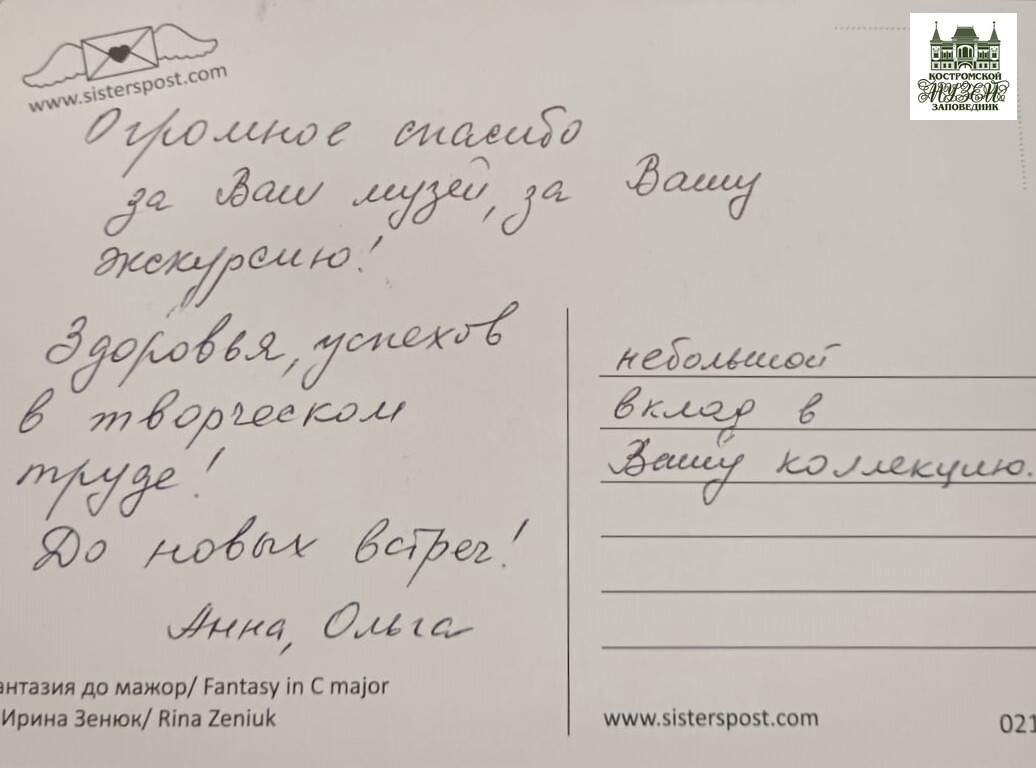 www.sisterspost.com
КОСТРОМСКОЙ
МУЗЕЙ
ЗАПОВЕДНИК
Огромное спасибо
за Ваш музей, за Вашу
экскурсию!
Здоровья, успехов
в творческом
труде!
До новых встреч!
Анна, Ольга
небольшой
вклад в
Вашу коллекцию.
антазия до мажор/ Fantasy in C major
Ирина Зенюк/ Rina Zeniuk
www.sisterspost.com
021